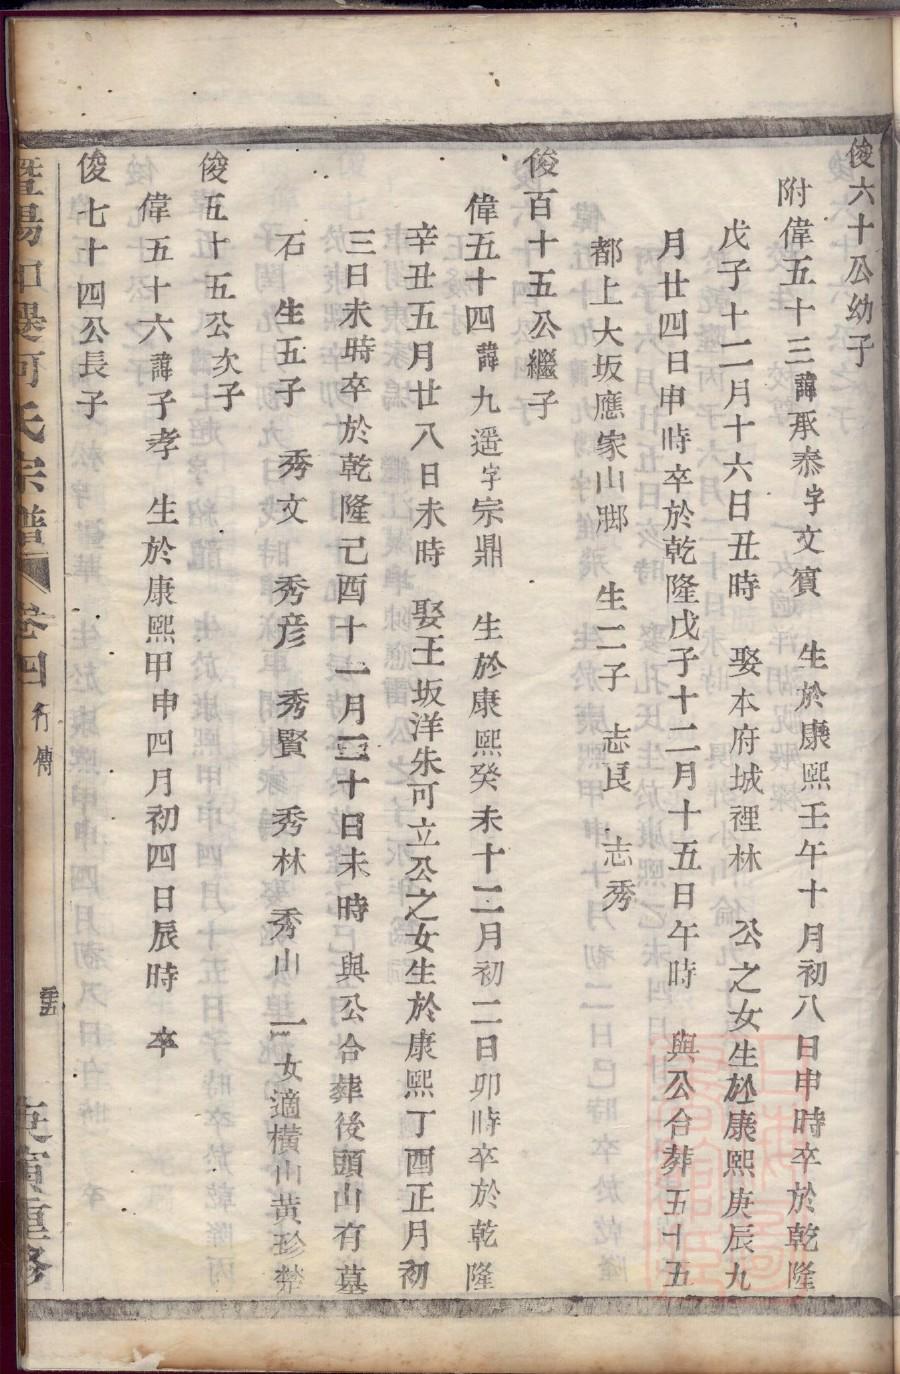 俊六十公幼子
附偉五十三諱承泰字文賔 生於康熙壬午十月初八日申時卒於乾隆
戊子十二月十六日丑時 娶本府城裡林 公之女生於康熙庚辰九
月廿四日申時卒於乾隆戊子十二月十五日午時 與公合葬五十五
都上大坂應家山脚 生二子 志良 志秀
俊百十五公繼子
偉五十四諱九遥字宗鼎 生於康熙癸未十二月初二日卯時卒於乾隆
辛丑五月廿八日未時 娶王坂洋朱可立公之女生於康熙丁酉正月初
三日未時卒於乾隆己酉十一月三十日未時 與公合葬後頭山有墓
石 生五子 秀文 秀彦 秀賢 秀林 秀山 一女適橫山黄珍
俊五十五公次子
偉五十六諱子孝 生於康熙甲申四月初四日辰時 卒
俊七十四公長子
暨陽 何氏宗譜 卷四 行傳 重修